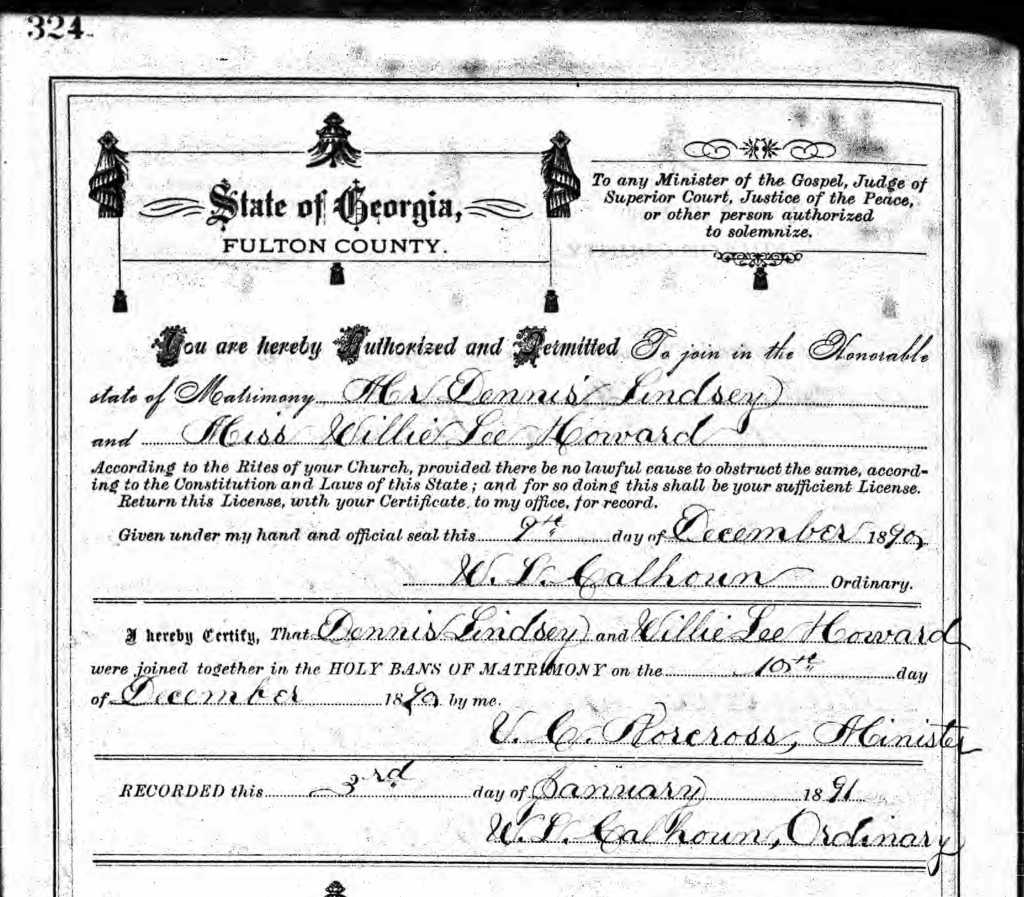 324.
State of Georgia,
FULTON COUNTY.
To any Minister of the Gospel, Judge of
Superior Court, Justice of the Peace,
or other person authorized
to solemnize.
You are hereby Authorized and Permitted To join in the Honorable
state of Matrimony Mr Dennis Lindsey
and Miss Willie Lee Howard
According to the Rites of your Church, provided there be no lawful cause to obstruct the same, accord-
ing to the Constitution and Laws of this State; and for so doing this shall be your sufficient License.
Return this License, with your Certificate, to my office, for record.
Given under my hand and official seal this 9th day of December 1890
W. L. Calhoun Ordinary.
I hereby Certify, That Dennis Lindsey and Willie Lee Howard
were joined together in the HOLY BANS OF MATRIMONY on the 10th day
of December 1890 by me.
V. C. Norcross, Minister
RECORDED this 3rd day of January 1891
W. L. Calhoun, Ordinary